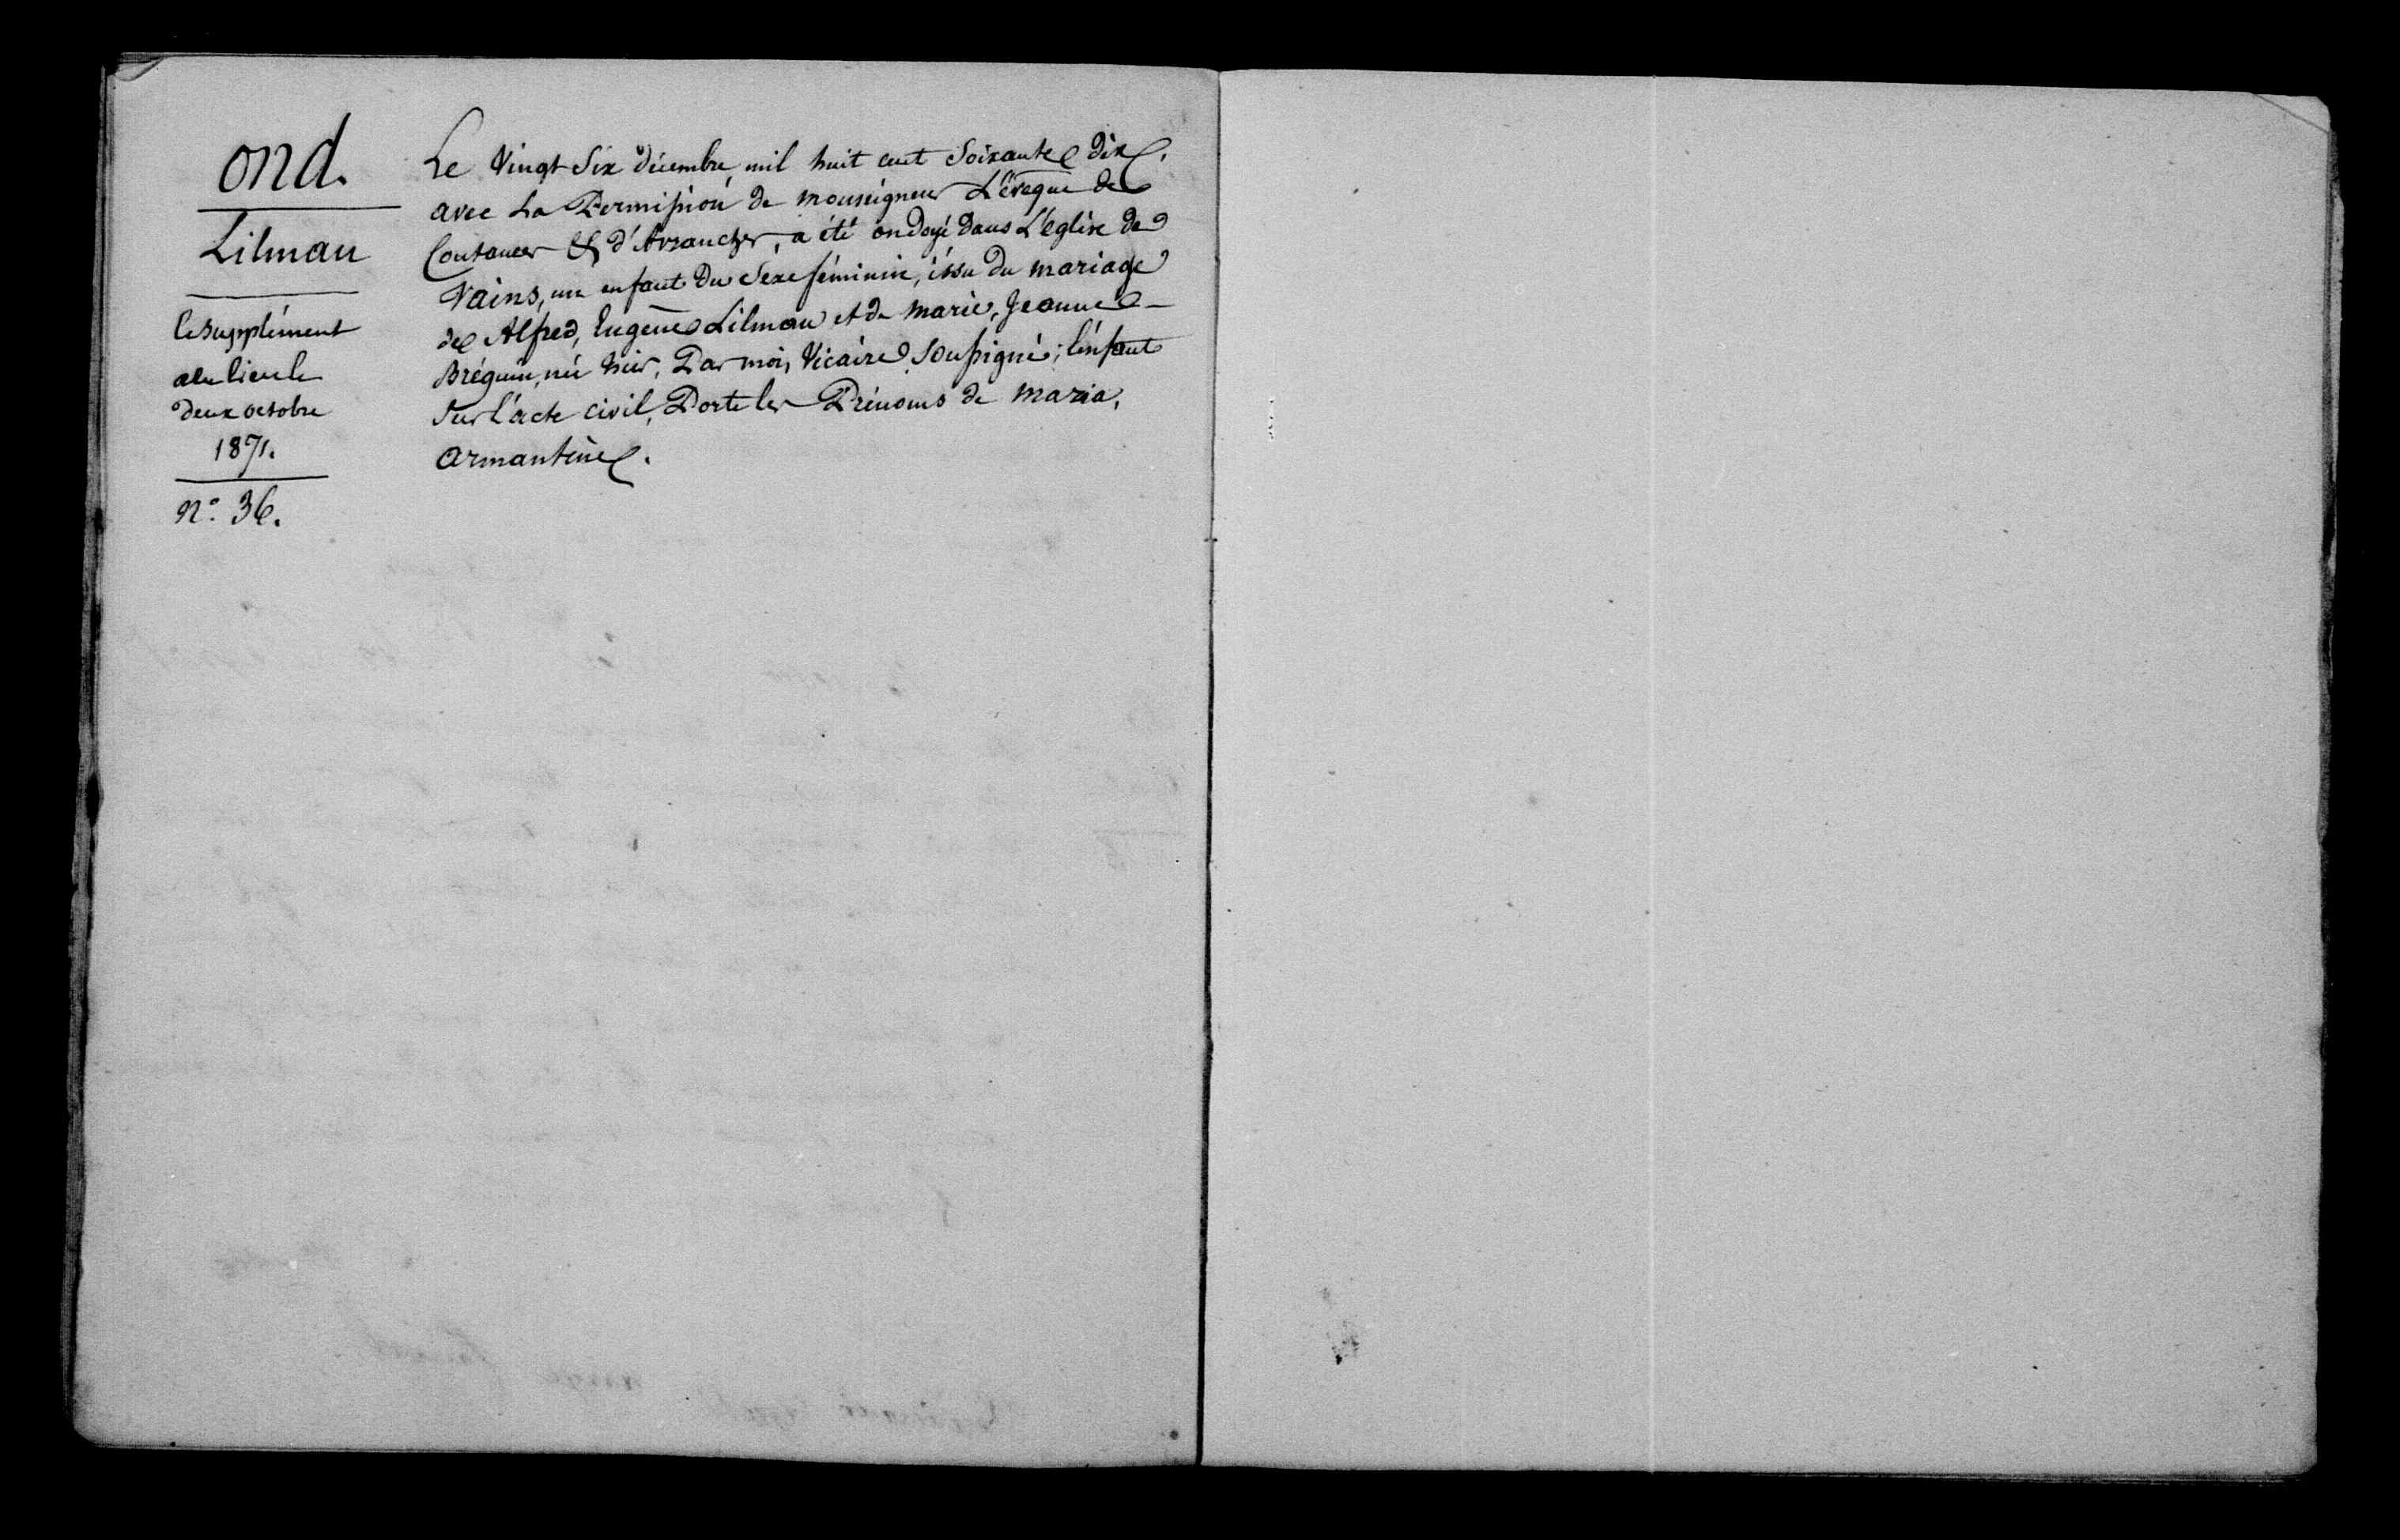 ond.
Lilman
le supplément
a eu lieu le
deux octobre
1871.
N° 36.
Le Vingt Six décembre, mil huit cent Soixante dix,
avec La Permission de monseigneur L'évêque de
Coutances & d'Avranches, a été ondoyé dans L'église de
Vains, un enfant du Sexe féminin, issu du mariage
de Alfred, Eugène Lilman et de Marie, Jeanne
Bréguin, né hier, Par moi, Vicaire Soussigné; l'enfant
Sur l'acte civil, Porte les Prénoms de Maria,
Armantine.